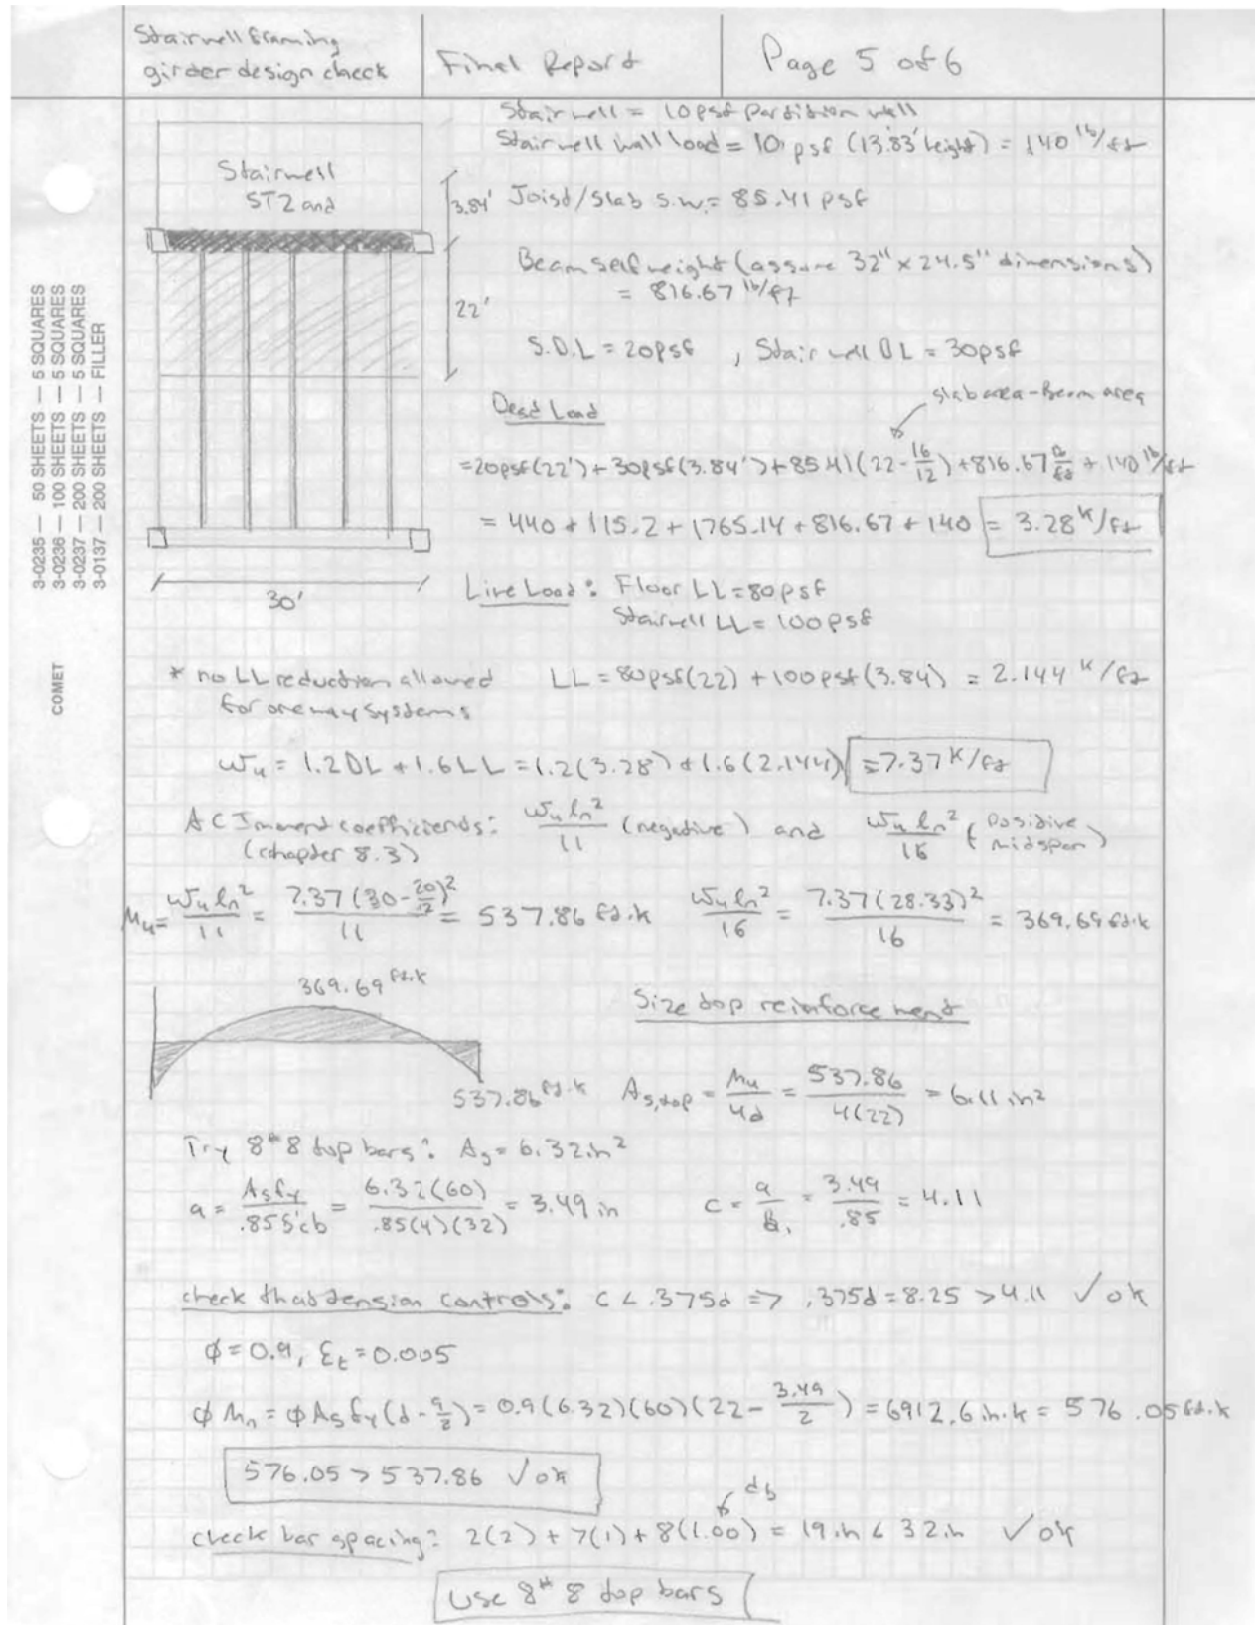 Stairwell framing
girder design check
Final Report
Page 5 of 6
3-0235 — 50 SHEETS — 5 SQUARES
3-0236 — 100 SHEETS — 5 SQUARES
3-0237 — 200 SHEETS — 5 SQUARES
3-0137 — 200 SHEETS — FILLER
COMET
Stairwell = 10psf partition wall
Stairwell wall load = 10 psf (13.83' height) = 140 lb/ft
Stairwell
ST2 and
3.84'
Joist/slab s.w. = 85.41 psf
22'
Beam self weight (assume 32" x 24.5" dimensions)
= 816.67 lb/ft
S.D.L = 20psf , Stairwell DL = 30psf
Dead Load
slab area - Beam area
= 20psf(22') + 30psf(3.84') + 85.41(22 - 16/12) + 816.67 lb/ft + 140 lb/ft
= 440 + 115.2 + 1765.14 + 816.67 + 140 = 3.28 k/ft
30'
Live Load: Floor LL = 80psf
Stairwell LL = 100psf
* no LL reduction allowed
for one way systems
LL = 80psf(22) + 100psf(3.84) = 2.144 k/ft
wu = 1.2DL + 1.6LL = 1.2(3.28) + 1.6(2.144) = 7.37 k/ft
ACI moment coefficients: wu ln²/11 (negative) and wu ln²/16 (positive midspan)
(chapter 8.3)
Mu = wu ln²/11 = 7.37(30 - 20/12)²/11 = 537.86 ft.k wu ln²/16 = 7.37(28.33)²/16 = 369.69 ft.k
369.69 ft.k
Size top reinforcement
537.86 ft.k
As,top = Mu/4d = 537.86/4(22) = 6.11 in²
Try 8 #8 top bars: As = 6.32 in²
a = As fy/.85f'c b = 6.32(60)/.85(4)(32) = 3.49 in c = a/β1 = 3.49/.85 = 4.11
check that tension controls: c < .375d => .375d = 8.25 > 4.11 ✓ ok
φ = 0.9, εt = 0.005
φMn = φAs fy(d - a/2) = 0.9(6.32)(60)(22 - 3.49/2) = 6912.6 in.k = 576.05 ft.k
576.05 > 537.86 ✓ ok
db
check bar spacing: 2(2) + 7(1) + 8(1.00) = 19 in < 32 in ✓ ok
Use 8 #8 top bars